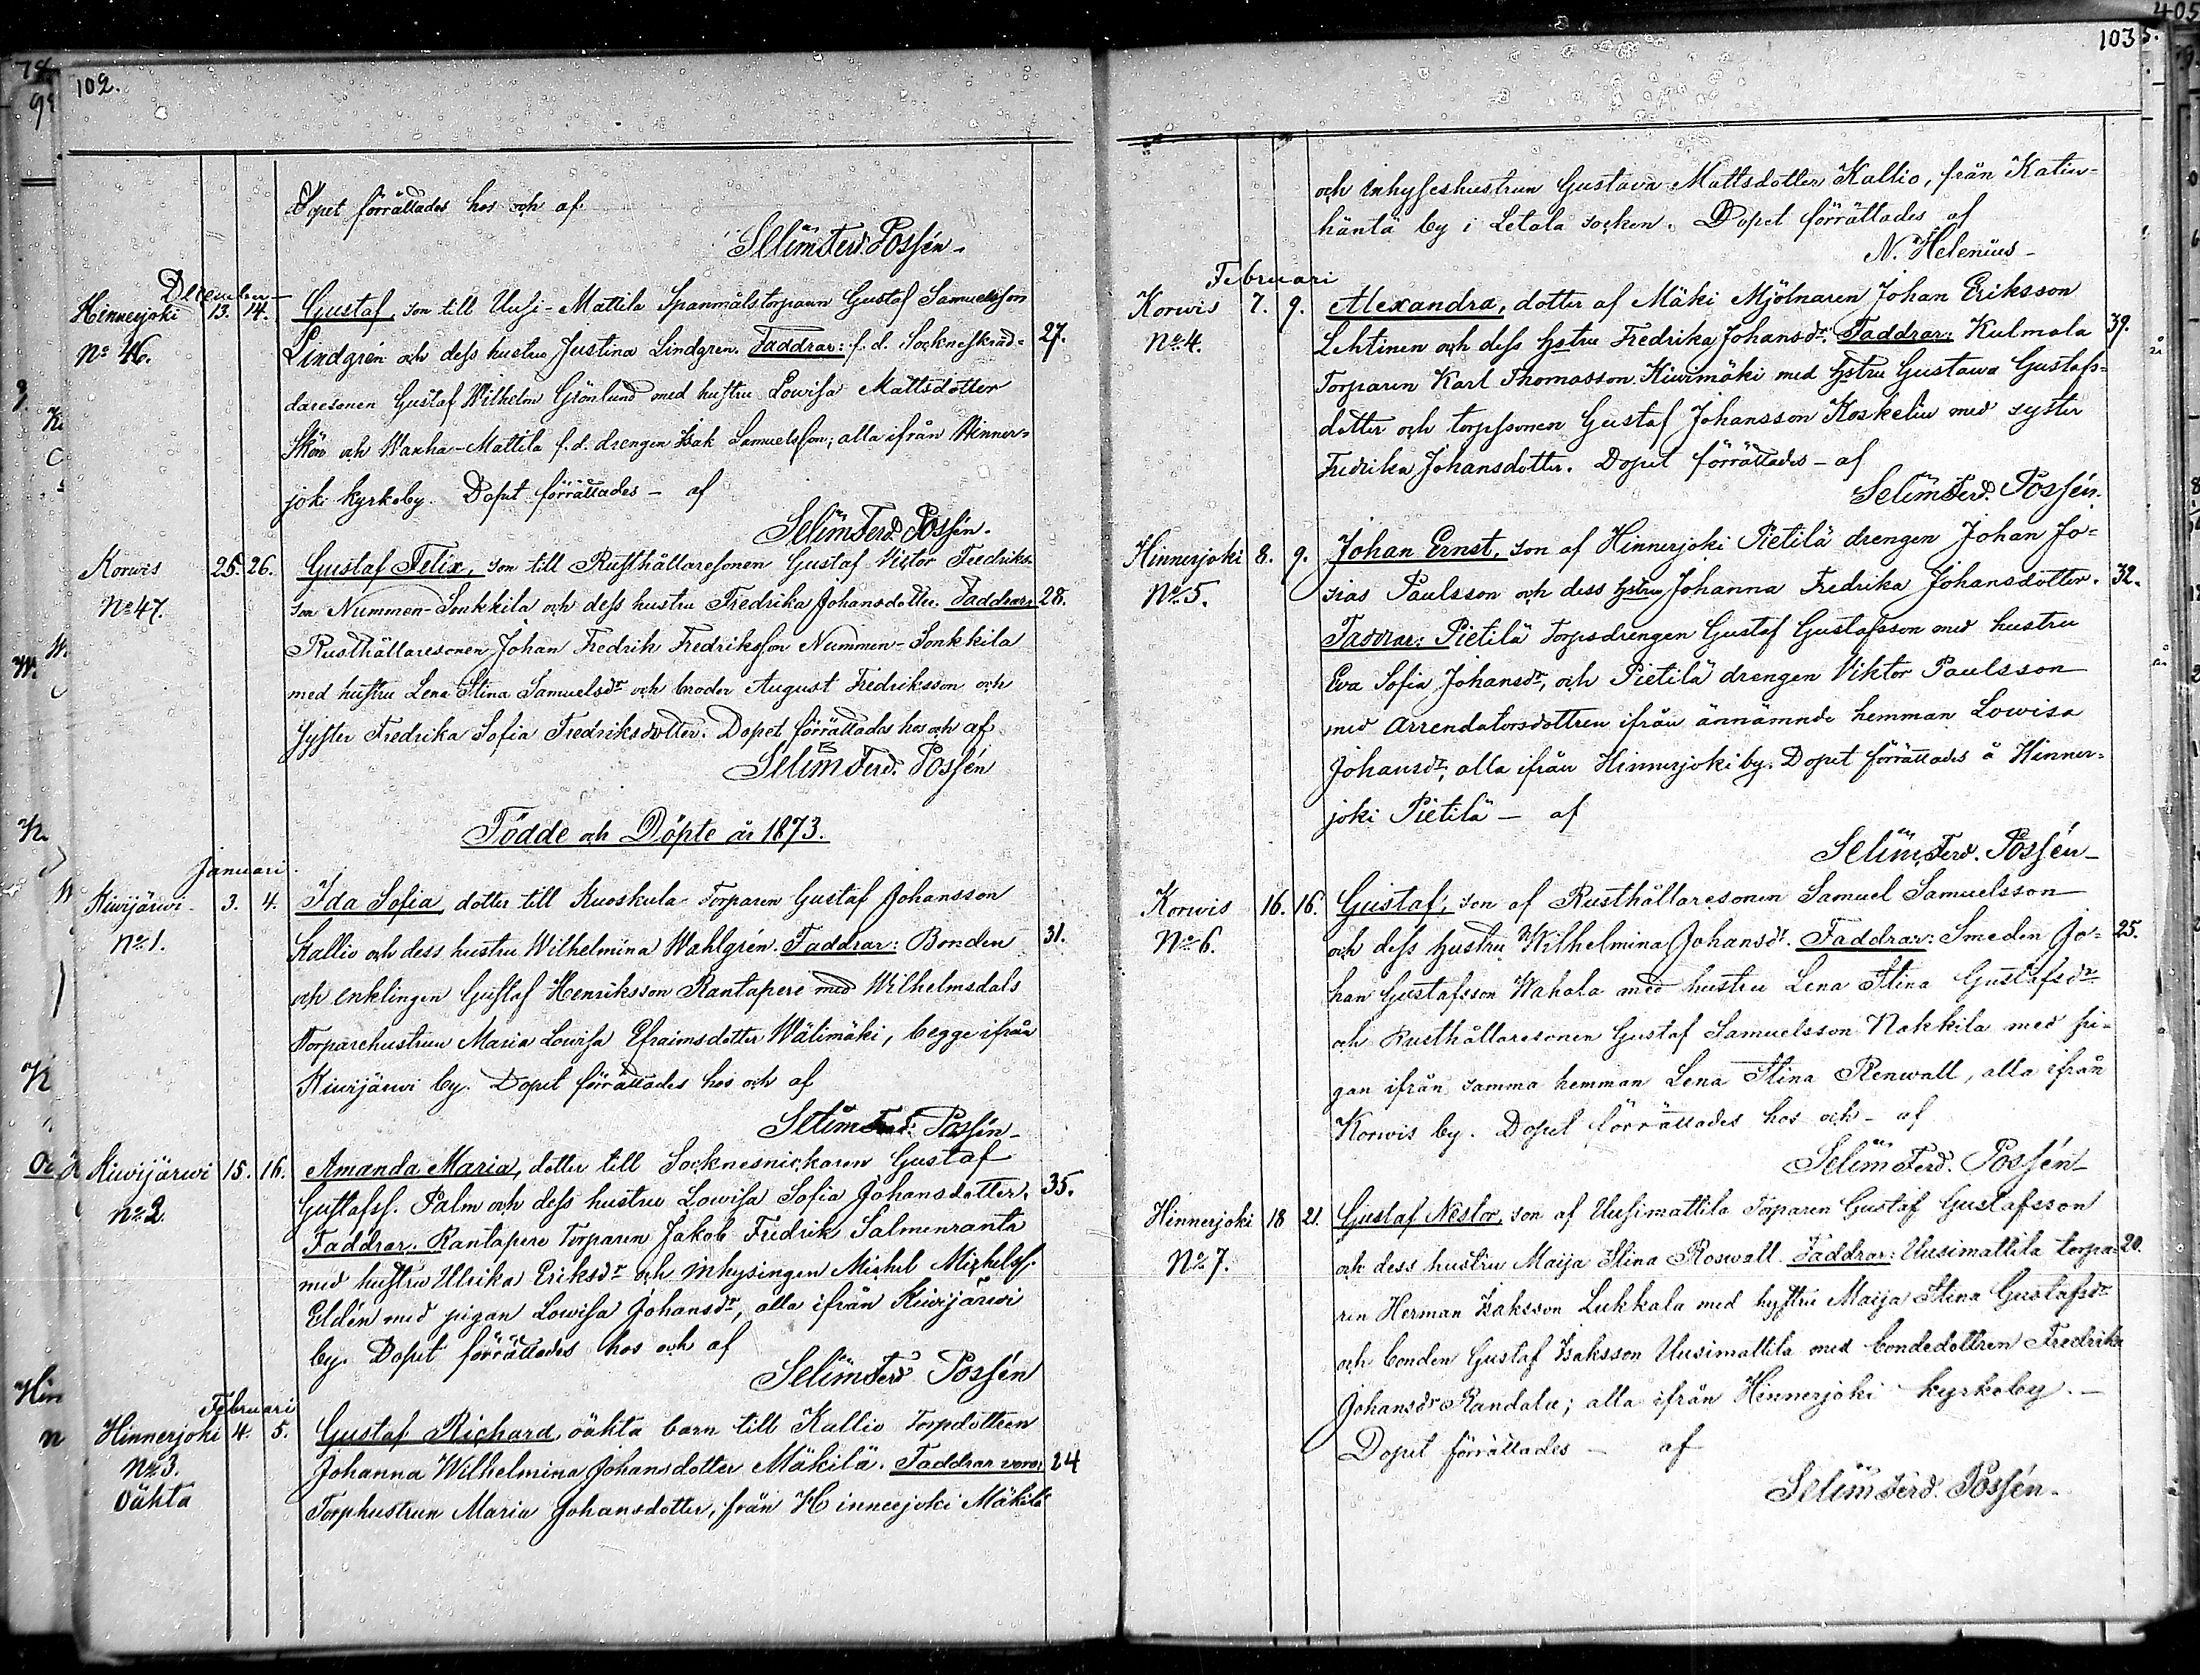 102.
Dopet förrättades hos och af
Selim Ferd. Possén
December
Hinnerjoki 13. 14. Gustaf, son till Uusi-Mattila Spanmålstorparen Gustaf Samuelsson
No 46. Lindgrén och dess hustru Justina Lindgren. Faddrar: f. d. Socknessknd- 27.
daresonen Gustaf Wilhelm Grönlund med hustru Lowisa Mattsdotter
Skön och Wanha-Mattila f.d. drengen Isak Samuelsson; alla ifrån Hinner-
joki kyrkoby. Dopet förrättades - af
Selim Ferd. Possén.
Korwis 25. 26. Gustaf Felix, son till Rusthållaresonen Gustaf Victor Fredriks-
No 47. son Nummen-Sonkkila och dess hustru Fredrika Johansdotter. Faddrar: 28.
Rusthållaresonen Johan Fredrik Fredriksson Nummen-Sonkkila
med hustru Lena Stina Samuelsdr och broder August Fredriksson och
Syster Fredrika Sofia Fredriksdotter. Dopet förrättades hos och af
Selim Ferd. Possén
Födde och Döpte år 1873.
Januari.
Kiwijärwi 3. 4. Ida Sofia, dotter till Kuoskula Torparen Gustaf Johansson
No 1. Kallio och dess hustru Wilhelmina Wahlgrén. Faddrar: Bonden 31.
och enklingen Gustaf Henriksson Rantapere med Wilhelmsdals
Torparehustrun Maria Lowisa Efraimsdotter Wälimäki, begge ifrån
Kiwijärwi by. Dopet förrättades hos och af
Selim Ferd. Possén
Kiwijärwi 15. 16. Amanda Maria, dotter till Socknesnickaren Gustaf
No 2. Gustafss. Palm och dess hustru Lowisa Sofia Johansdotter. 35.
Faddrar: Rantapere Torparen Jakob Fredrik Salmenranta
med hustru Ulrika Eriksdr och inhysingen Michel Michelss.
Eldén med pigan Lowisa Johansdr, alla ifrån Kiwijärwi
by. Dopet förrättades hos och af
Selim Ferd. Possén
Februari
Hinnerjoki 4. 5. Gustaf Richard, oäkta barn till Kallio Torpdottren
No 3. Johanna Wilhelmina Johansdotter Mäkilä. Faddrar voro: 24
Oäkta Torphustrun Maria Johansdotter, från Hinnerjoki Mäkilä
103
och inhyseshustrun Gustava Mattsdotter Kallio, från Katin-
häntä by i Letala socken. Dopet förrättades af
N. Helenius
Februari
Korwis 7. 9. Alexandra, dotter af Mäki Mjölnaren Johan Eriksson
No 4. Lehtinen och dess hstru Fredrika Johansdr. Faddrar: Kulmala 39.
Torparen Karl Thomasson Kiwimäki med hstru Gustawa Gustafs-
dotter och torpssonen Gustaf Johansson Koskelin med syster
Fredrika Johansdotter. Dopet förrättades - af
Selim Ferd. Possén.
Hinnerjoki 8. 9. Johan Ernst, son af Hinnerjoki Pietilä drengen Johan Jo-
No 5. sias Paulsson och dess hstru Johanna Fredrika Johansdotter. 32.
Faddrar: Pietilä Torpsdrengen Gustaf Gustafsson med hustru
Eva Sofia Johansdr, och Pietilä drengen Viktor Paulsson
med Arrendatorsdottren ifrån ännämnde hemman Lowisa
Johansdr, alla ifrån Hinnerjoki by. Dopet förrättades å Hinner-
joki Pietilä - af
Selim Ferd. Possén
Korwis 16. 16. Gustaf, son af Rusthållaresonen Samuel Samuelsson
No 6. och dess hustru Wilhelmina Johansdr. Faddrar: Smeden Jo- 25.
han Gustafsson Wahala med hustru Lena Stina Gustafsdr
och Rusthållaresonen Gustaf Samuelsson Nakkila med pi-
gan ifrån samma hemman Lena Stina Renwall, alla ifrån
Korwis by. Dopet förrättades hos och - af
Selim Ferd. Possén
Hinnerjoki 18 21. Gustaf Nestor, son af Uusimattila Torparen Gustaf Gustafsson
No 7. och dess hustru Maija Stina Roswall. Faddrar: Uusimattila torpa- 20.
ren Herman Isaksson Lukkala med hustru Maija Stina Gustafsdr
och bonden Gustaf Isaksson Uusimattila med bondedottren Fredrika
Johansdr Randala; alla ifrån Hinnerjoki kyrkoby.
Dopet förrättades - af
Selim Ferd. Possén.